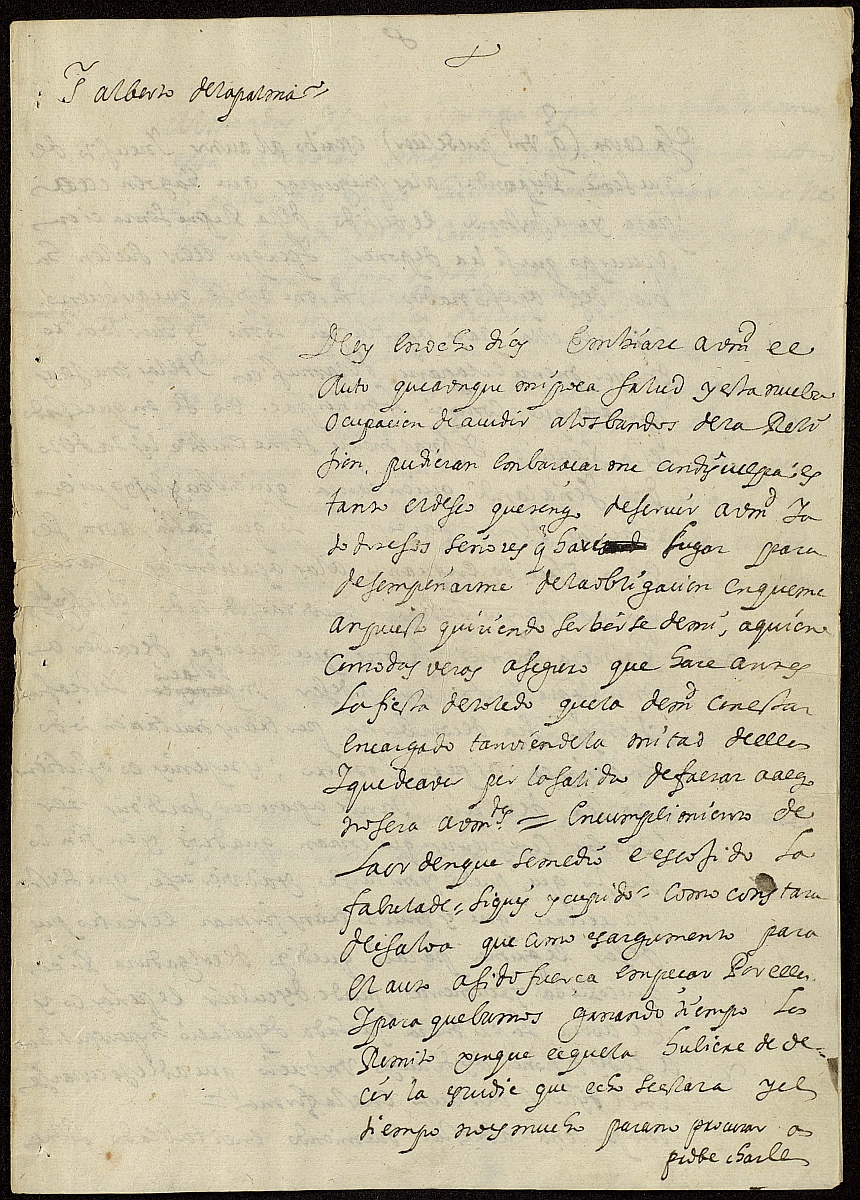 S alberto de la palma
De oy en ocho dias Embiare a vmd el
Auto que aunque mi poca salud y esta nueba
ocupacion de acudir a los bandos de la Relí
jion. pudieran embaraçarme an disculpa; es
tanto el deseo que tengo de servir a vmd Ja
todos esos señores q haré lugar para
desempeñarme de la obligacion en que me
an puesto quiriendo serbirse de mi, a quien
como das veras aseguro que hace a unos
La fiesta de toledo que la de md con estar
encargado tanvien de la mitad de ella
I que de aver por la salida de faltar a alg
no sera a vmds = En cumplimiento de
La orden que se me dio e escojido La
fabula de = siquis y cupido = Como constara
de la loa que como es argumento para
el auto a sido fuerça empeçar Por ella
I para que bamos ganando tiempo La
Remito porque el que la hubiere de de-
cir la estudie que echo se estara y el
tiempo no es mucho para no procurar a
probecharle